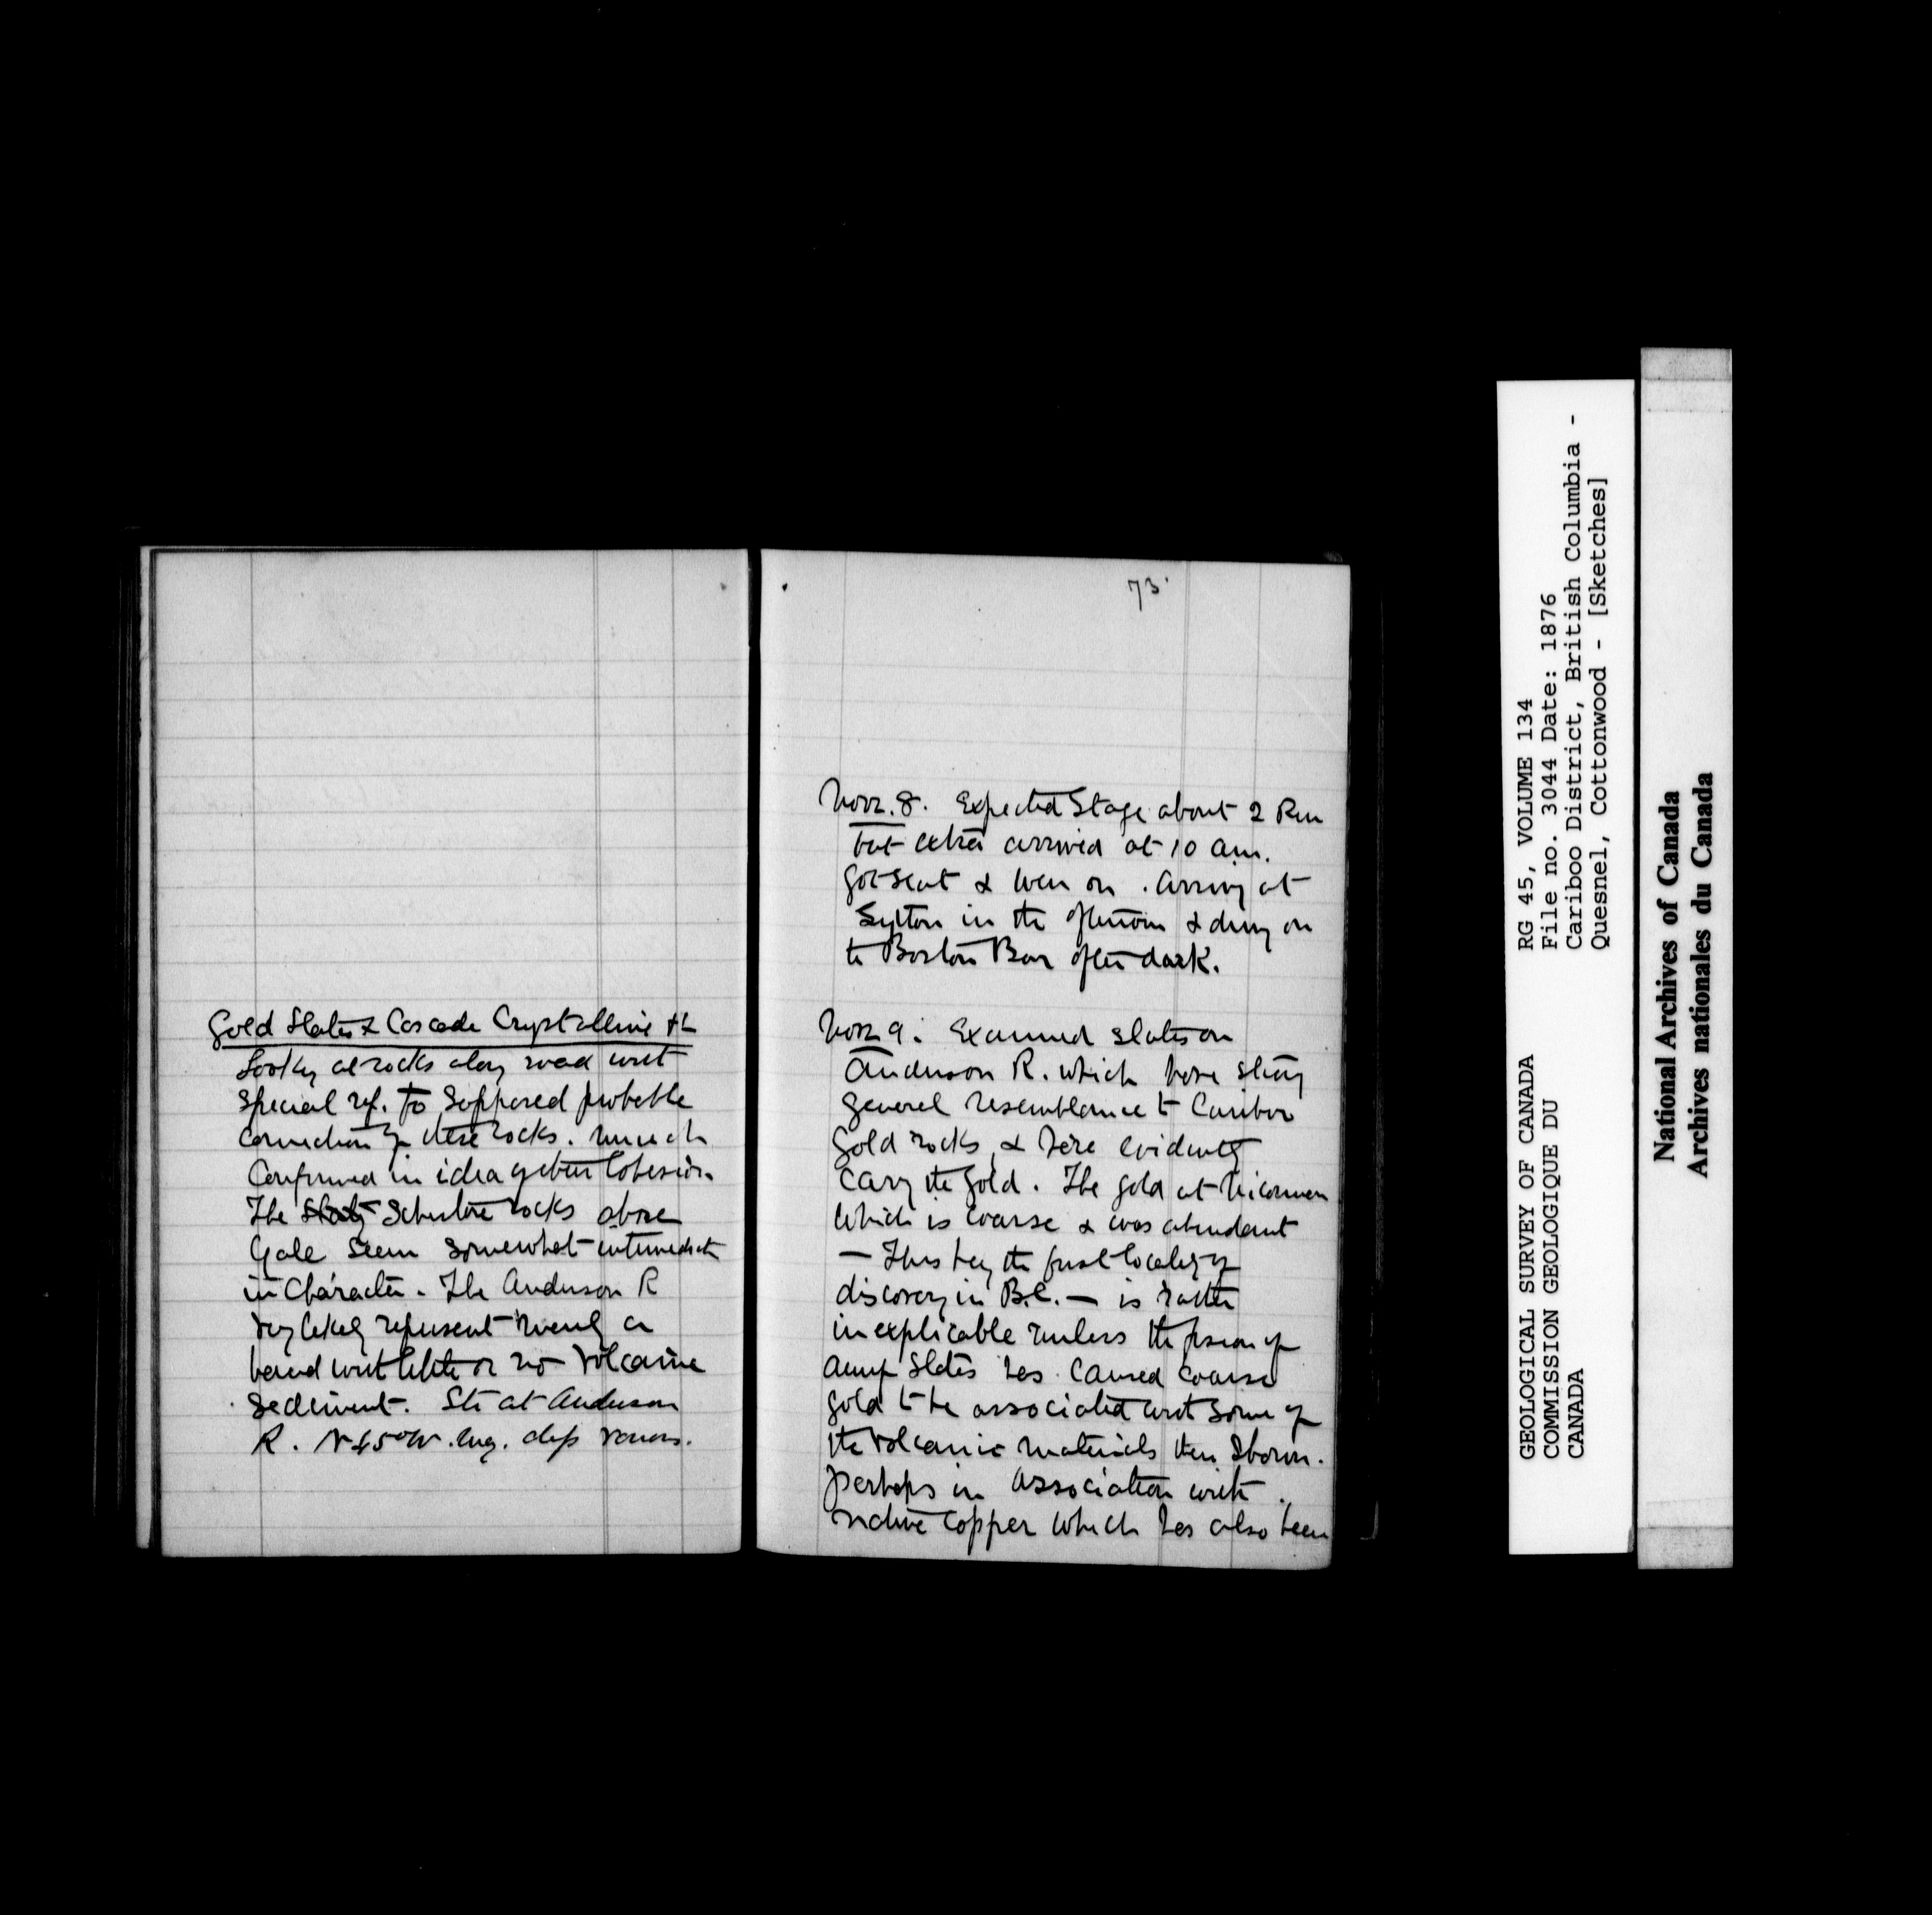 Gold Slates & Cascade Crystalline
Looking at rocks along road with
special ref. to supposed probable
connection of these rocks. Much
Confirmed in idea of their
The Slaty Schistose rocks above
Yale seem somewhat intermediate
in Character. The Anderson R
very likely represent merely a
band with little or no volcanic
Sediment. Ste at Anderson
R. N 45° W. mag. dips
73
Novr. 8. Expected Stage about 2 P.m
but extra arrived at 10 a.m.
Got seat & wen on. Arriving at
Lytton in the afternoon & driving on
to Boston Bar after dark.
Novr 9. Examined slates on
Anderson R. which have strong
general resemblance to Cariboo
Gold rocks, & here evidently
carry the gold. The gold at Nicommen
which is coarse & was abundant
— This being the first locality of
discovery in B.C. — is rather
inexplicable unless the fusion of
slates has caused coarse
gold to be associated with some of
the volcanic materials then
perhaps in association with
native copper which has also been
GEOLOGICAL SURVEY OF CANADA
COMMISSION GEOLOGIQUE DU
CANADA
RG 45, VOLUME 134
File no. 3044 Date: 1876
Cariboo District, British Columbia -
Quesnel, Cottonwood - [Sketches]
National Archives of Canada
Archives nationales du Canada